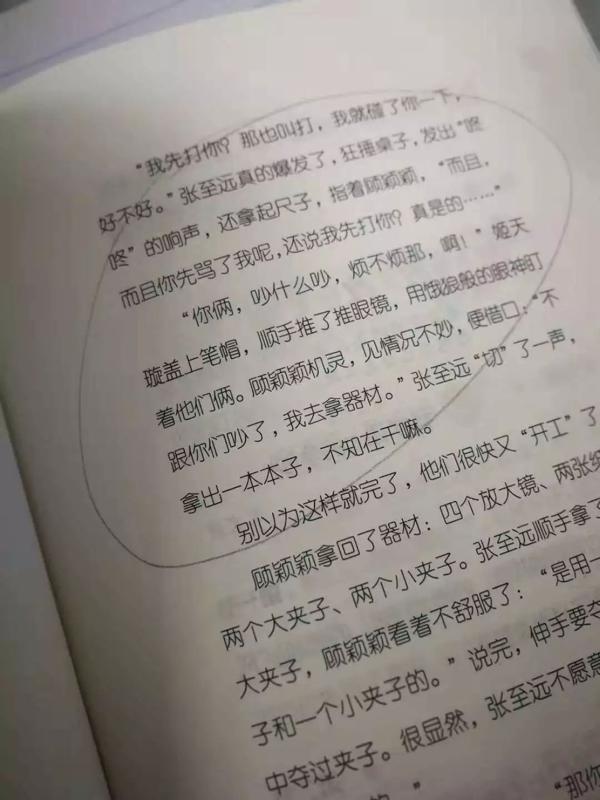 “我先打你？那也叫打，我就碰了你一下，
好不好。”张至远真的爆发了，狂捶桌子，发出“咚
咚”的响声，还拿起尺子，指着顾颖颖，“而且，
而且你先骂了我呢，还说我先打你？真是的……”
“你俩，吵什么吵，烦不烦那，啊！”姬天
璇盖上笔帽，顺手推了推眼镜，用饿狼般的眼神盯
着他们俩。顾颖颖机灵，见情况不妙，便借口：“不
跟你们吵了，我去拿器材。”张至远“切”了一声，
拿出一本本子，不知在干嘛。
别以为这样就完了，他们很快又“开工”了
顾颖颖拿回了器材：四个放大镜、两张
两个大夹子、两个小夹子。张至远顺手拿了
大夹子，顾颖颖看着不舒服了：“是用一
子和一个小夹子的。”说完，伸手要夺
中夺过夹子。很显然，张至远不愿意
“那你